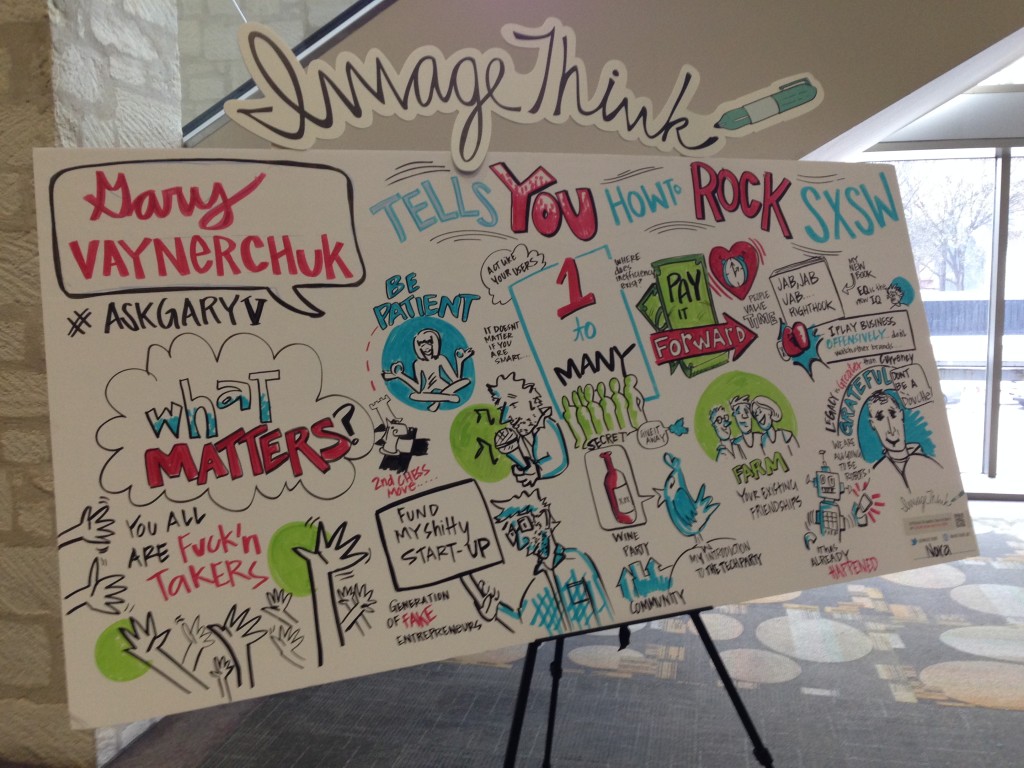 ImageThink
Gary
VAYNERCHUK
#ASKGARYV
TELLS YOU HOW to ROCK SXSW
What
MATTERS?
YOU ALL
ARE Fuck'n
TAKERS
BE
PATIENT
2nd CHESS
MOVE....
FUND
MY Shitty
START-UP
GENERATION
OF FAKE
ENTREPRENEURS
ACT LIKE
YOUR USERS
IT DOESNT
MATTER
IF YOU
ARE
SMART...
1
to
MANY
SECRET
WINE
PARTY
GIVE IT
AWAY
COMMUNITY
MY INTRODUCTION
TO THE TECH PARTY
WHERE
does
inefficiency
exist?
PAY
IT
FORWARD
PEOPLE
VALUE
FARM
YOUR EXISTING
FRIENDSHIPS
JAB, JAB
JAB....
RIGHT HOOK
MY
NEW
BOOK
I PLAY BUSINESS
OFFENSIVELY...
LEGACY is Greater than Currency
GRATEFUL
DON'T
BE A
Douche!
WE ARE
ALL GOING
TO BE
ROBOTS!
It HAS
ALREADY
HAPPENED
ImageThink
Nora